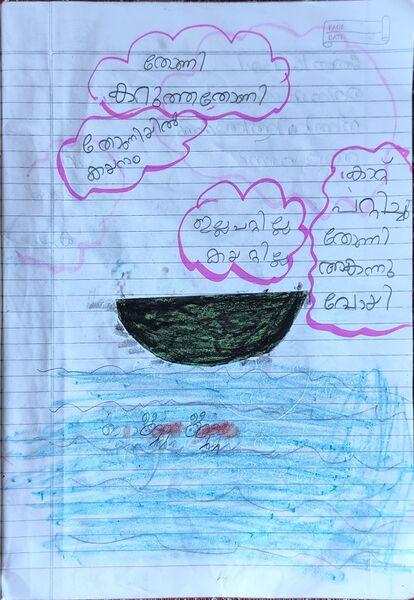 PAGE
DATE
തോണി
കറുത്തതോണി
തോണിയിൽ
കയറാം
ഇല്ല പറ്റില്ല
കയറ്റില്ല
കാറ്റ്
പറ്റിച്ചു
തോണി
അകന്നു
പോയി